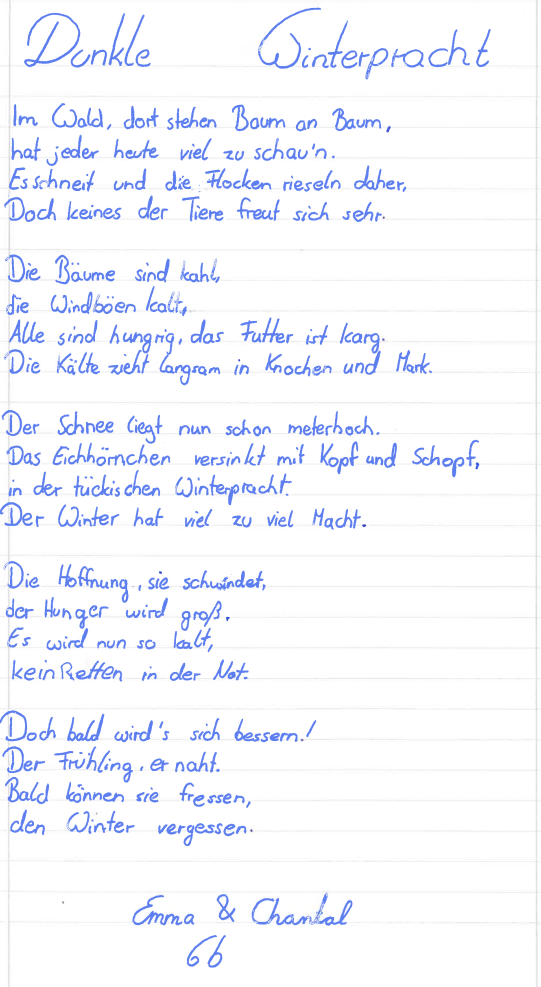 Dunkle Winterpracht
Im Wald, dort stehen Baum an Baum,
hat jeder heute viel zu schau'n.
Es schneit und die Flocken rieseln daher,
Doch keines der Tiere freut sich sehr.
Die Bäume sind kahl,
die Windböen kalt,
Alle sind hungrig, das Futter ist karg.
Die Kälte zieht langsam in Knochen und Mark.
Der Schnee liegt nun schon meterhoch.
Das Eichhörnchen versinkt mit Kopf und Schopf,
in der tückischen Winterpracht.
Der Winter hat viel zu viel Macht.
Die Hoffnung, sie schwindet,
der Hunger wird groß.
Es wird nun so kalt,
kein Retten in der Not.
Doch bald wird's sich bessern!
Der Frühling, er naht.
Bald können sie fressen,
den Winter vergessen.
Emma & Chantal
6b